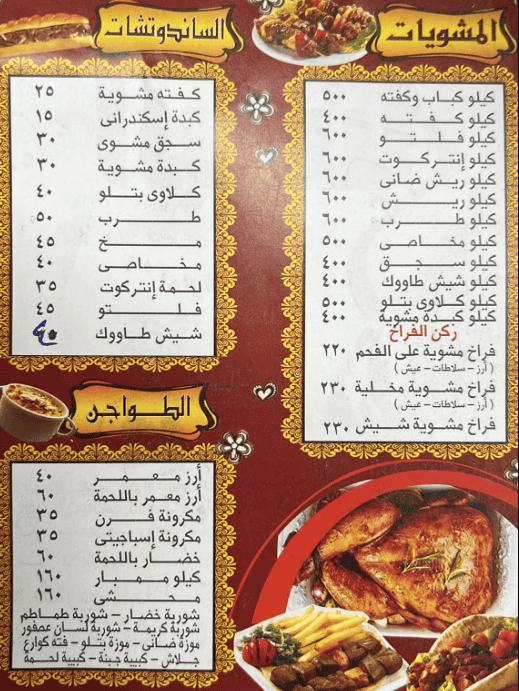 المشويات
كيلو كباب وكفته ٥٠٠
كيلو كفته ٤٠٠
كيلو فلتو ٦٠٠
كيلو إنتركوت ٦٠٠
كيلو ريش ضانى ٦٠٠
كيلو ريش ٦٠٠
كيلو طرب ٦٠٠
كيلو مخاصى ٥٠٠
كيلو سجق ٤٠٠
كيلو شيش طاووك ٤٠٠
كيلو كلاوى بتلو ٥٠٠
كيلو كبدة مشوية ٤٠٠
ركن الفراخ
فراخ مشوية على الفحم ٢٢٠
( أرز - سلاطات - عيش )
فراخ مشوية مخلية ٢٣٠
( أرز - سلاطات - عيش )
فراخ مشوية شيش ٢٣٠
الساندوتشات
كفته مشوية ٢٥
كبدة إسكندرانى ١٥
سجق مشوى ٣٠
كبدة مشوية ٣٠
كلاوى بتلو ٤٠
طرب ٥٠
مخ ٤٥
مخاصى ٤٠
لحمة إنتركوت ٣٥
فلتو ٤٥
شيش طاووك
الطواجن
أرز معمر ٤٠
أرز معمر باللحمة ٦٠
مكرونة فرن ٣٥
مكرونة إسباجيتى ٣٥
خضار باللحمة ٦٠
كيلو ممبار ١٦٠
محشى ١٦٠
شوربة خضار - شوربة طماطم
شوربة كريمة - شوربة لسان عصفور
موزة ضانى - موزة بتلو - فته كوارع
جلاش - كبيبة جبنة - كبيبة لحمة